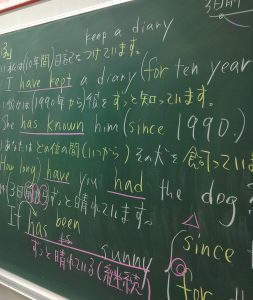 keep a diary
私は(10年間)日記をつけています。
I have kept a diary (for ten year
彼女は(1990年から)彼をずっと知っています。
She has known him (since 1990.)
あなたはどの位の間(いつから)その犬を飼っていま
How long) have you had the dog?
3日間 ずっと晴れています。
It has been sunny
since
ずっと晴れている(継続)
for